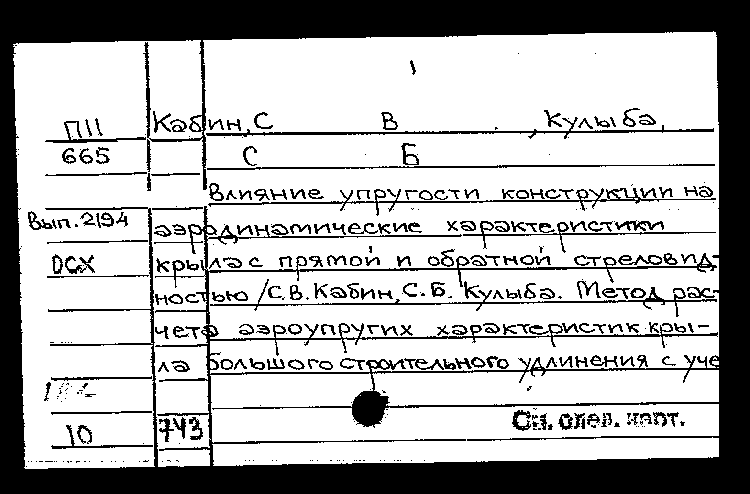 1
П11 Кабин, С В , Кулыба,
665 С Б
Влияние упругости конструкции на
Вып. 2194 аэродинамические характеристики
ОСХ крыла с прямой и обратной стреловид-
ностью / С.В. Кабин, С.Б. Кулыба. Метод рас-
чета аэроупругих характеристик кры-
ла большого строительного удлинения с уче
10 743 См. след. карт.